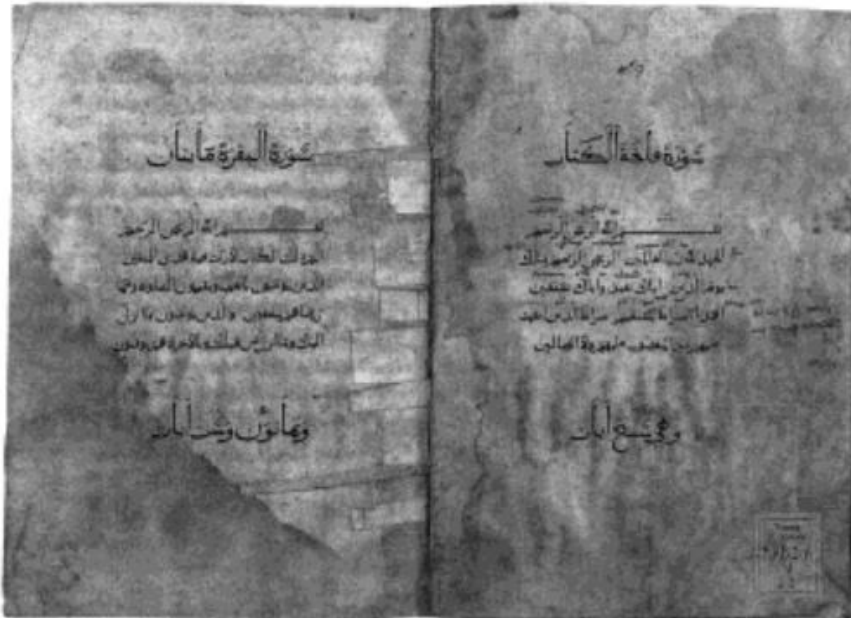 سورة فاتحة الكتاب
بسم الله الرحمن الرحيم
الحمد لله رب العالمين الرحمن الرحيم ملك
يوم الدين اياك نعبد واياك نستعين
اهدنا الصراط المستقيم صراط الذين انعمت
عليهم غير المغضوب عليهم ولا الضالين
وهي سبع ايات
سورة البقرة مايتان
بسم الله الرحمن الرحيم
الم ذلك الكتاب لا ريب فيه هدى للمتقين
الذين يؤمنون بالغيب ويقيمون الصلوة ومما
رزقناهم ينفقون والذين يؤمنون بما انزل
اليك وما انزل من قبلك وبالاخرة هم يوقنون
وثمانون وست ايات